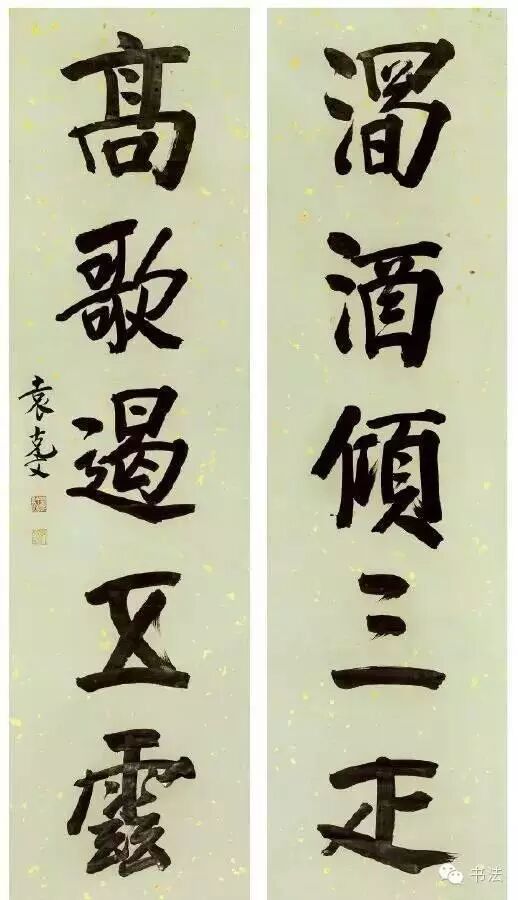 酒傾三疋
高歌遏五雲
袁克文
书法